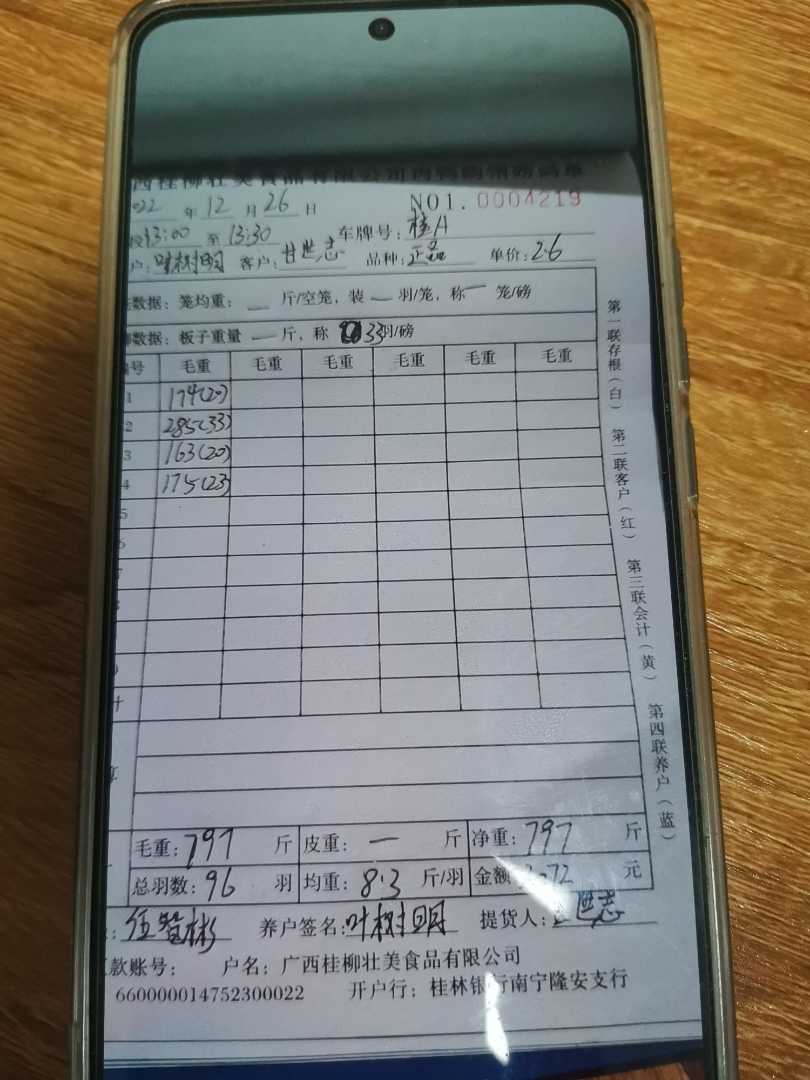 西桂柳壮美食品有限公司肉鸭销
022 年 12 月 26 日 NO1.0004219
13:00 至 13:30 车牌号: 桂A
户: 叶树明 客户: 甘世志 品种: 正品 单价: 2.6
数据: 笼均重: — 斤/空笼, 装 — 羽/笼, 称 — 笼/磅
数据: 板子重量 — 斤, 称 33羽/磅
号 毛重 毛重 毛重 毛重 毛重 毛重
1 174(20)
2 285(33)
3 163(20)
4 175(23)
5
计
算
毛重: 797 斤 皮重: — 斤 净重: 797 斤
总羽数: 96 羽 均重: 8.3 斤/羽 金额 072 元
: 伍智彬 养户签名: 叶树明 提货人: 世志
款账号: 户名: 广西桂柳壮美食品有限公司
660000014752300022 开户行: 桂林银行南宁隆安支行
第一联存根(白) 第二联客户(红) 第三联会计(黄) 第四联养户(蓝)